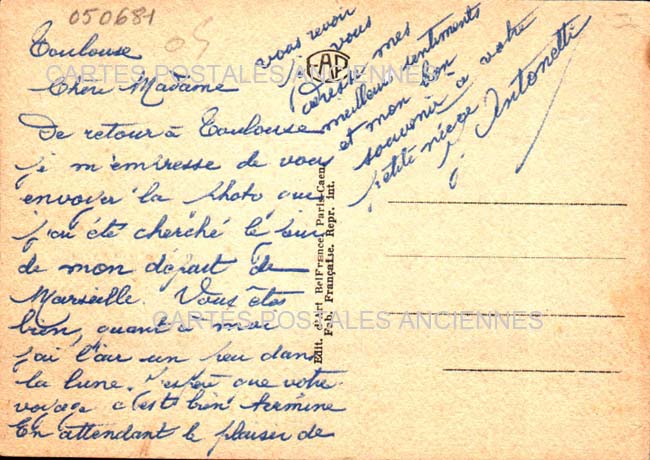 050681
05
Toulouse
Chère Madame
De retour à Toulouse
je m'empresse de vous
envoyer la photo que
j'ai été cherché le jour
de mon départ de
Marseille. Vous êtes
bien, quant à moi
j'ai l'air un peu dans
la lune. J'espère que votre
voyage c'est bien terminé
En attendant le plaisir de
vous revoir
je vous
adresse mes
meilleurs sentiments
et mon bon
souvenir à votre
petite nièce
J. Antonetti
CAP
Edit. d'Art BelFrance, Paris-Caen
Fab. Française. Repr. int.
CARTES POSTALES ANCIENNES
CARTES POSTALES ANCIENNES